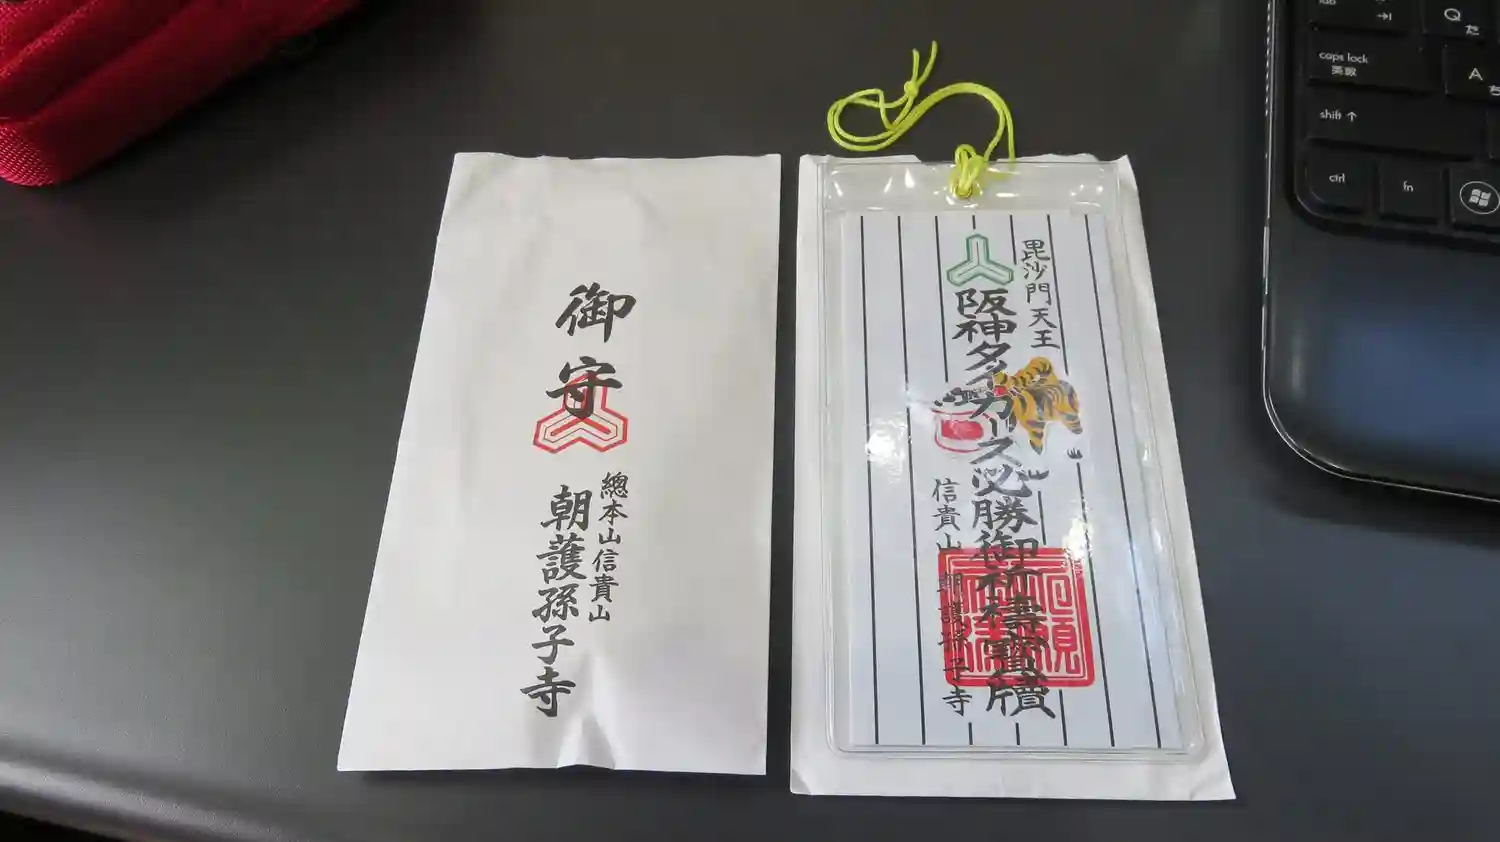 御守
總本山信貴山
朝護孫子寺
毘沙門天王
阪神タイガース必勝御祈禱寳牘
信貴山 朝護孫子寺
tab
Q
た
caps lock
英数
A
ち
shift
ctrl
fn